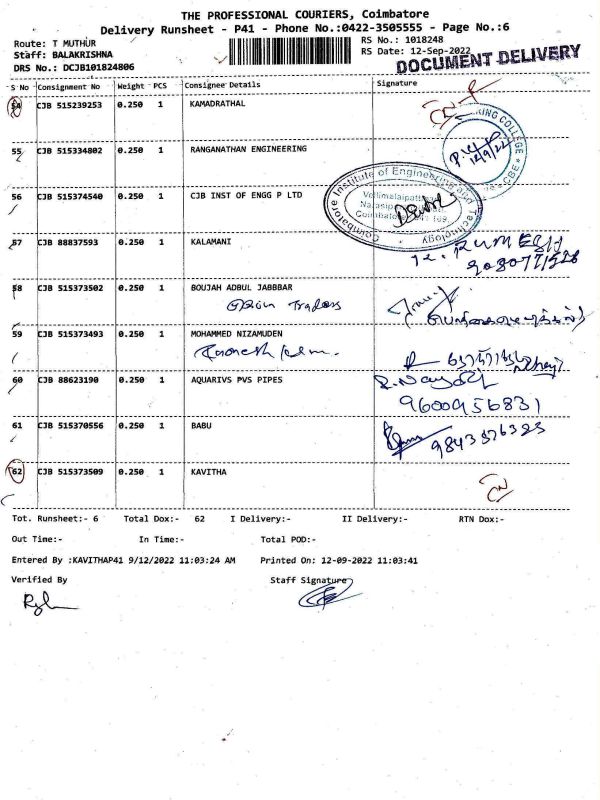 THE PROFESSIONAL COURIERS, Coimbatore
Delivery Runsheet - P41 - Phone No.:0422-3505555 - Page No.:6
Route: T MUTHUR
RS No.: 1018248
Staff: BALAKRISHNA
RS Date: 12-Sep-2022
DRS No.: DCJB101824806
DOCUMENT DELIVERY
S No Consignment No Weight PCS Consignee Details Signature
54 CJB 515239253 0.250 1 KAMADRATHAL
KING COLLEGE
CBE
12/9/22
55 CJB 515334802 0.250 1 RANGANATHAN ENGINEERING
56 CJB 515374540 0.250 1 CJB INST OF ENGG P LTD
Coimbatore Institute of Engineering and Technology
57 CJB 88837593 0.250 1 KALAMANI
58 CJB 515373502 0.250 1 BOUJAH ADBUL JABBBAR
Traders
59 CJB 515373493 0.250 1 MOHAMMED NIZAMUDEN
60 CJB 88623190 0.250 1 AQUARIVS PVS PIPES
9600956831
61 CJB 515370556 0.250 1 BABU
9843576323
62 CJB 515373509 0.250 1 KAVITHA
CN
Tot. Runsheet:- 6 Total Dox:- 62 I Delivery:- II Delivery:- RTN Dox:-
Out Time:- In Time:- Total POD:-
Entered By :KAVITHAP41 9/12/2022 11:03:24 AM Printed On: 12-09-2022 11:03:41
Verified By Staff Signature